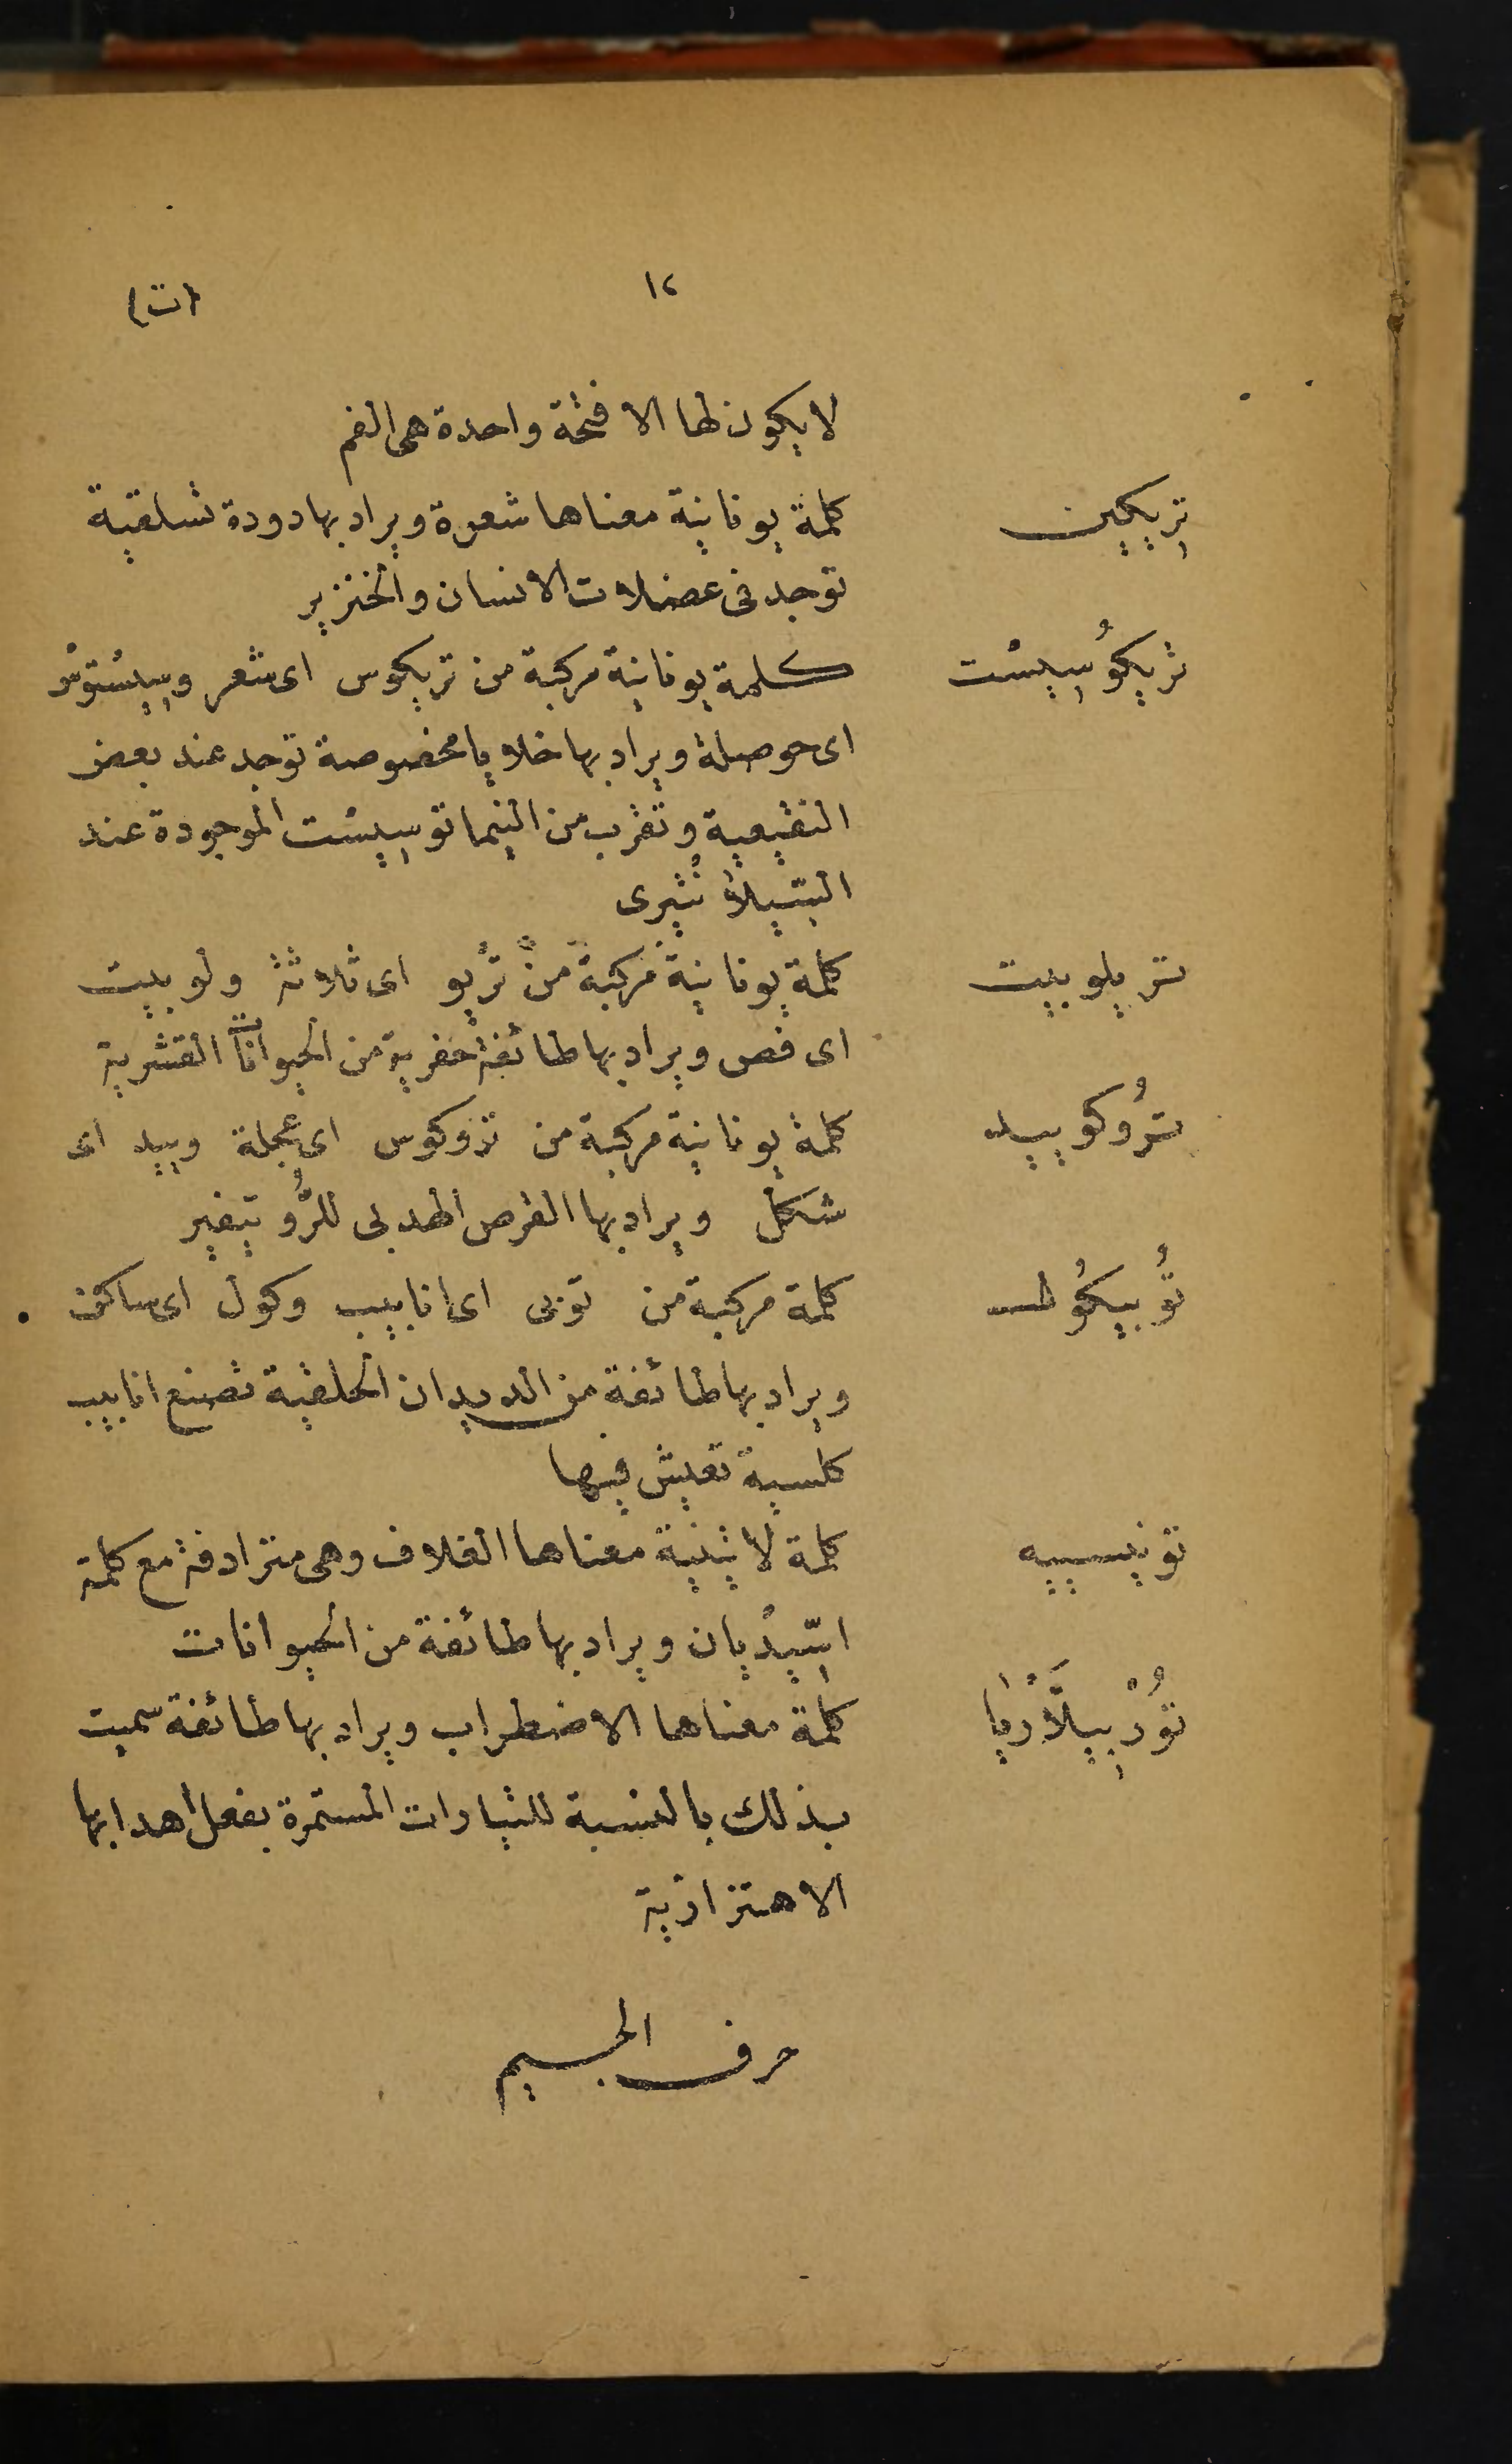 ١٢ (ت)
لا يكون لها الا فتحة واحدة هى الفم
تِريكين كلمة يونانية معناها شعرة ويراد بها دودة تسلقية
توجد فى عضلات الانسان والخنزير
تريكُوسِيسْت كلمة يونانية مركبة من تريكوس اى شعر وسِيسْتوسْ
اى حوصلة ويراد بها خلايا مخصوصة توجد عند بعض
النقيعية وتقرب من النيماتوسِيسْت الموجودة عند
السّيلاُنْتيرى
تريلوبيت كلمة يونانية مركبة من تريو اى ثلاثة ولوبيت
اى فص ويراد بها طائفة حفرية من الحيوانات القشرية
ترُوكوييد كلمة يونانية مركبة من تروكوس اى عجلة وييد اى
شكل ويراد بها القرص الهدبى للرُّوتيفير
تُوبيكُول كلمة مركبة من توبى اى انابيب وكول اى ساكن
ويراد بها طائفة من الديدان الحلقية تصنع انابيب
كلسية تعيش فيها
تونيسييه كلمة لاتينية معناها الغلاف وهى مترادفة مع كلمة
اسّيدْيان ويراد بها طائفة من الحيوانات
تُورْبِيلَّارْيا كلمة معناها الاضطراب ويراد بها طائفة سميت
بذلك بالنسبة للتيارات المستمرة بفعل اهدابها
الاهتزازية
حرف الجيم